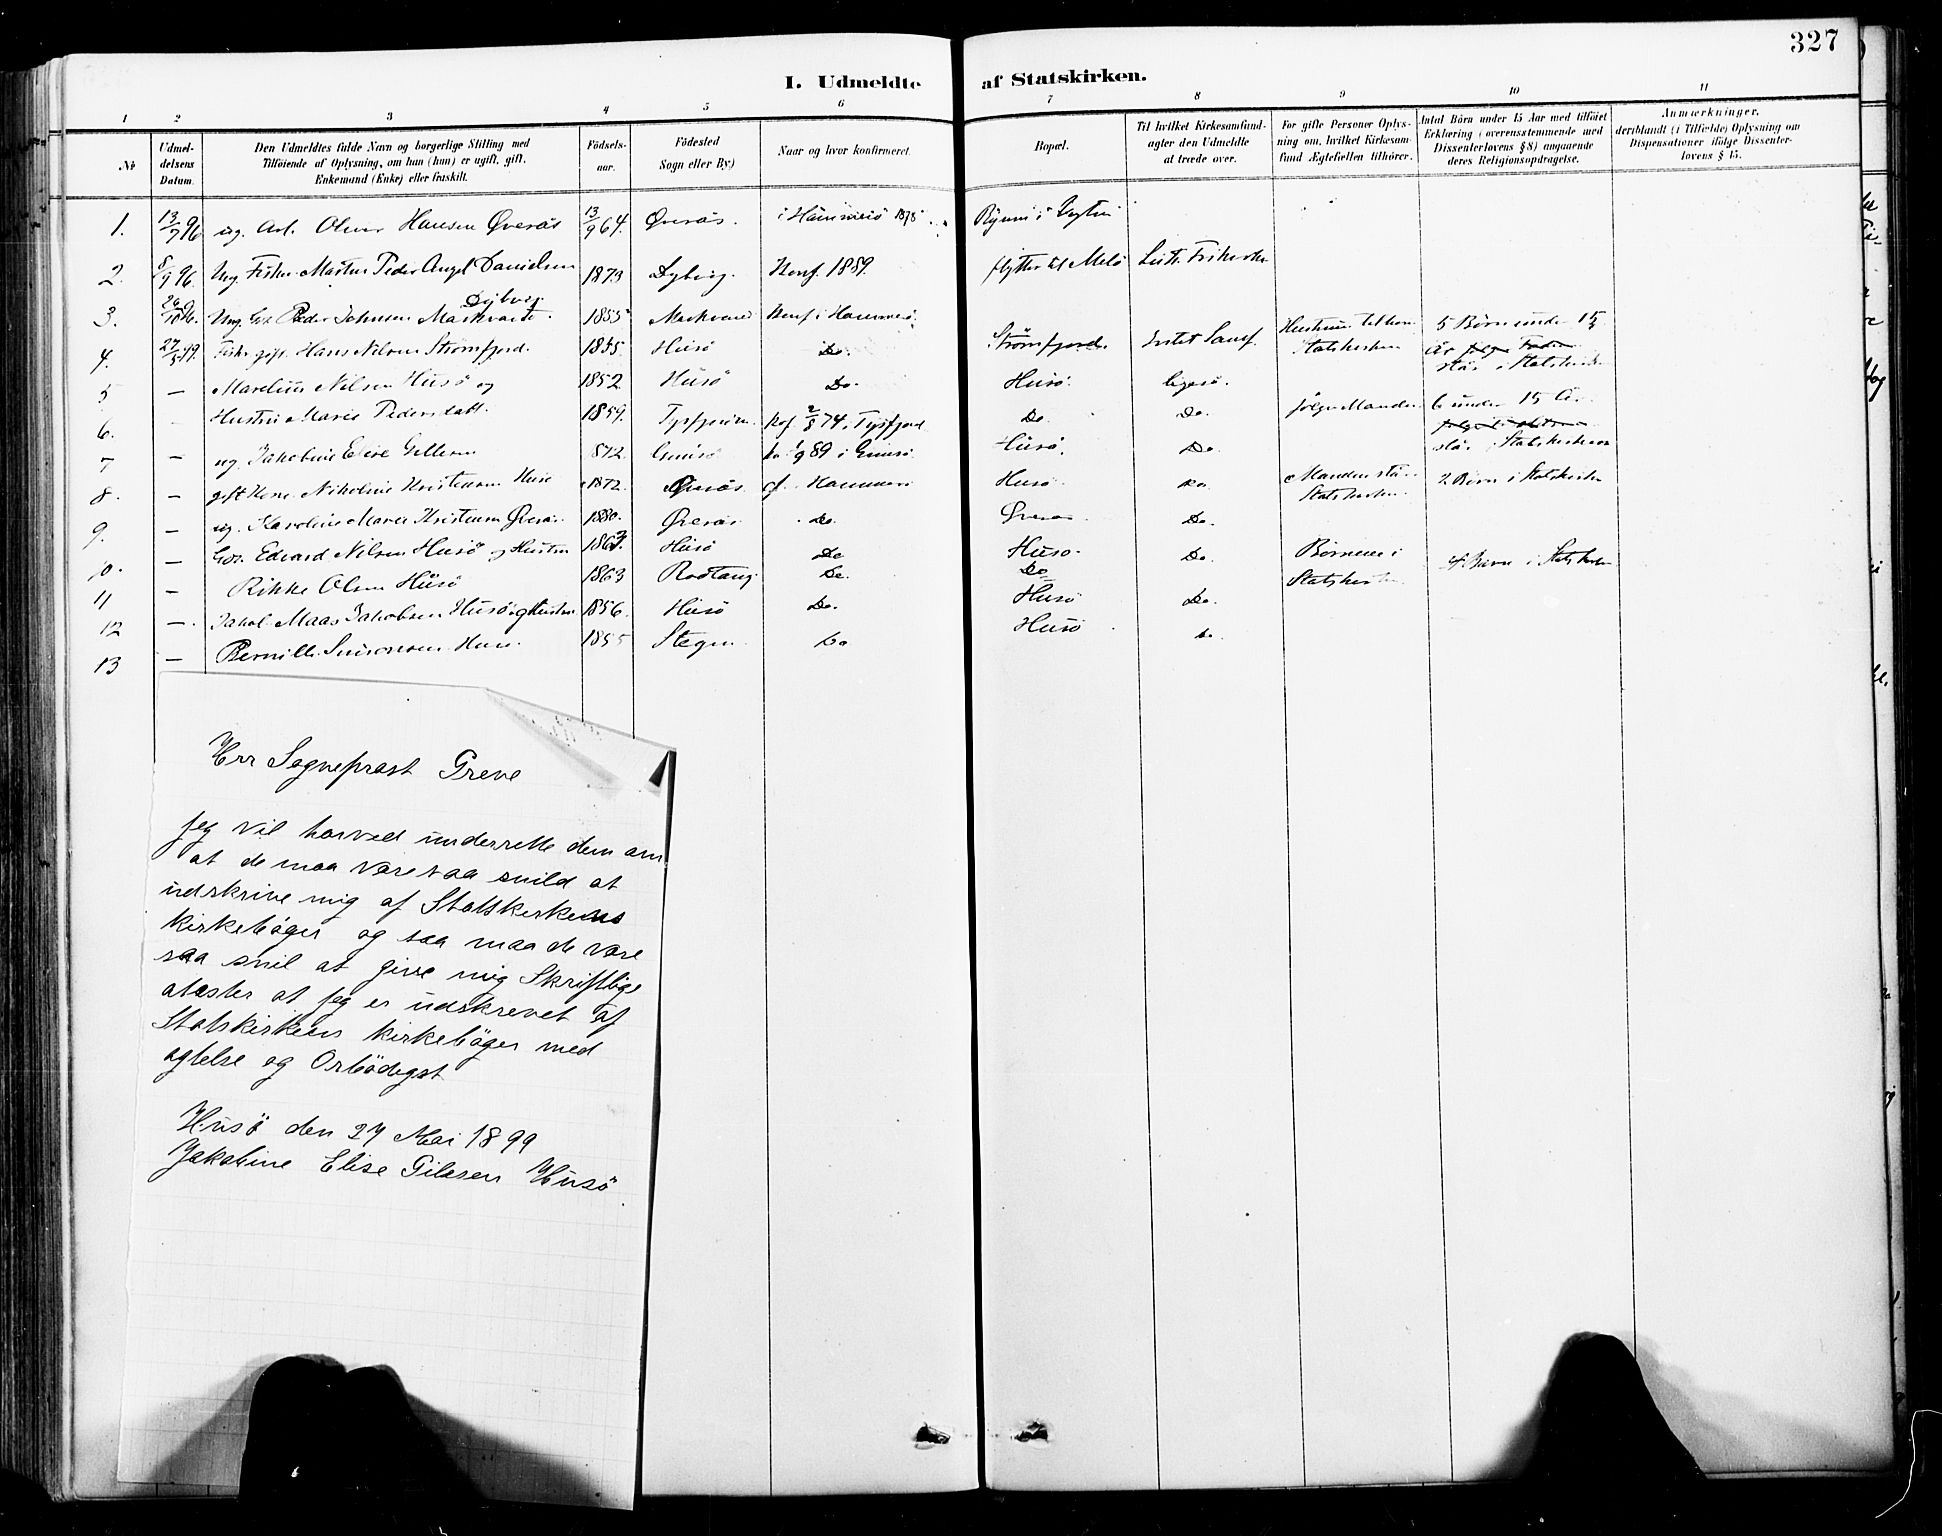 327
I. Udmeldte af Statskirken.
1 2 3 4 5 6 7 8 9 10 11
No
Udmeldelsens Datum.
Den Udmeldtes fulde Navn og borgerlige Stilling med
Tilføiende af Oplysning, om han (hun) er ugift, gift,
Enkemand (Enke) eller fraskilt.
Födsels-
aar.
Födested
Sogn eller By)
Naar og hvor konfirmeret.
Bopæl.
Til hvilket Kirkesamfund-
agter den Udmeldte
at træde over.
For gifte Personer Oplys-
ning om, hvilket Kirkesam-
fund Ægtefællen tilhörer.
Antal Börn under 15 Aar med tilföiet
Erklæring (overensstemmende med
Dissenterlovens § 8) angaaende
deres Religionsopdragelse.
Anmærkninger,
deriblandt (i Tilfælde) Oplysning om
Dispensationer ifölge Dissenter-
lovens § 15.
1. 13/7 96 ug. Arb. Oluv Hansen Överås 13/9 64. Överås. i Hammerö 1878
2. 8/9 96. Ung. Fisker Martin Peder Angel Danielsen Dybvig 1873 Dybvig. Konf. 1889. flytter til Melö Luth. Frikirke
3. 26/10 96. Ung. Peder Johnsen Markvard 1855 Markvard Konf. i Hammerö
4. 27/5 99. Fisk. gift. Hans Nilsen Strömfjord. 1855. Husö Do. Strömfjord. Intet Samf. Hustru Statskirken 5 Börn under 15 År står i Statskirk
5 — Marelius Nilsen Husö og 1852 Husö Do. Husö. ligesö.
6. Hustru Marie Pedersdatt. 1859. Tysfjord Kof. 2/8 74 i Tysfjord Do. Do. fölger Manden 6 under 15 År står i Statskirken
7 — ug. Jakobine Elise Gillesen 1872. Gimsö 89 i Gimsö. Husö. Do.
8. — gift Kone Nikoline Kristensen Husö 1872. Överås Hammerö Husö Do. Manden står i Statskirken. 2 Börn i Statskirken
9. — ug. Karoline Marie Kristensen Överås. 1880. Överås Do. Överås. Do.
10. — Edvard Nilsen Husö og Hustru Husö Do Husö. Do. Börnene i Statskirken 4 Börn i Statskirken
11 — Rikke Olsen Husö 1863 Rodtang Do. Do
12 — Jakob Maas Jakobsen Husö og Hustru 1856. Husö Do. Husö Do.
13 — Pernille Simonsen Husö. 1855 Stegen. Do Husö Do.
Herr Sogneprast Greve
Jeg vil harved underrette dem om
at de maa vare saa snild at
udskrive mig af Statskirkens
kirkeböger og saa maa de vare
saa snil at give mig Skriftlige
atester at jeg er udskrevet af
Statskirkens kirkeböger med
agtelse og Orbödigst
Husö den 27 Mai 1899
Jakobine Elise Gilesen Husö